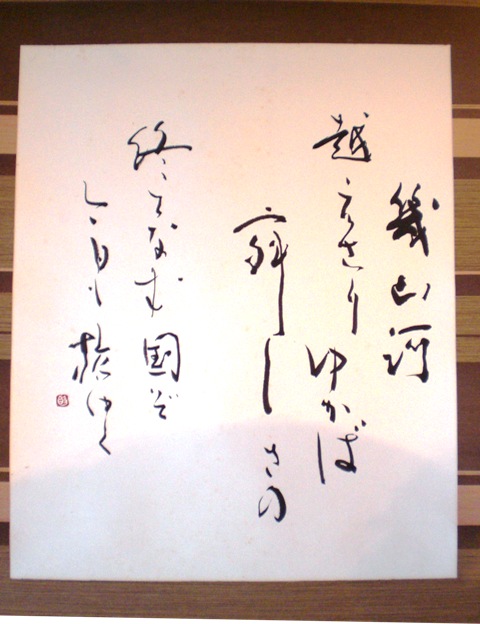 幾山河
越えさりゆかば
寂しさの
終てなむ国ぞ
今日も旅ゆく